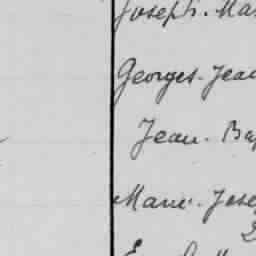 Joseph. Ma
Georges. Jea
Jean. Ba
Marie. Jose